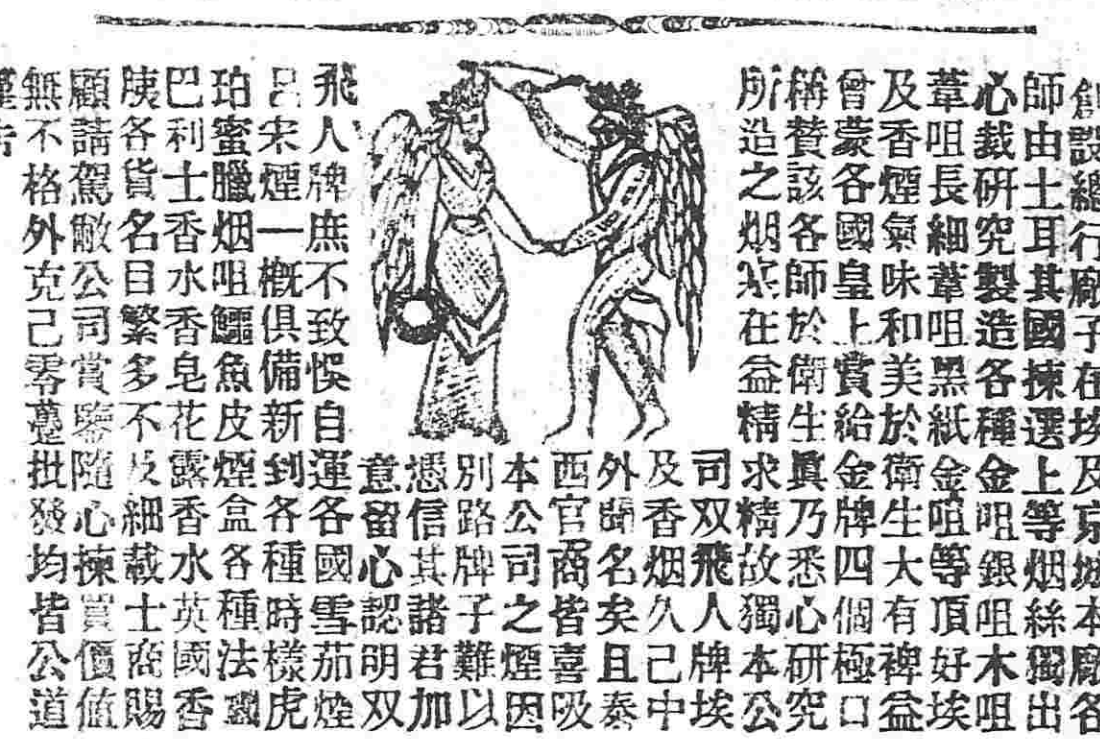 創設總行廠子在埃及京城本廠各
師由土耳其國揀選上等烟絲獨出
心裁研究製造各種金咀銀咀木咀
葦咀長細葦咀黑紙金咀等頂好埃
及香煙氣味和美於衛生大有裨益
曾蒙各國皇上賞給金牌四個極口
稱贊該各師於衛生眞乃悉心研究
所造之烟在益精求精故獨本公
司双飛人牌埃
及香烟久己中
外聞名矣且泰
西官商皆喜吸
本公司之煙因
別路牌子難以
憑信其諸君加
意留心認明双
飛人牌庶不致悞自運各國雪茄煙
呂宋煙一概俱備新到各種時樣虎
珀蜜臘烟咀鱷魚皮煙盒各種法
巴利士香水香皂花露香水英國香
胰各貨名目繁多不及細載士商賜
顧請駕敝公司賞鑒隨心揀買價值
無不格外克己零躉批發均皆公道
謹吿